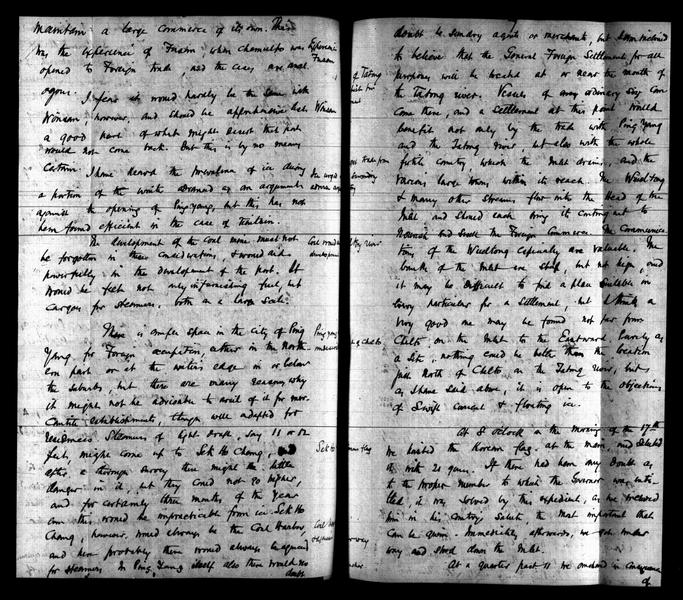 maintain a large commerce of its own. This
was the experience of Fusan when Chemulpo was
opened to Foreign trade, and the cases are anal
ogous.
I fear it would hardly be the same with
Wönsan, however, and should be apprehensive that
a good part of what might desert that port
would not come back. But this is by no means
certain.
I have heard the prevalence of ice during
a portion of the winter advanced as an argument
against the opening of Ping yang, but this has not
been found efficient in the case of Tientsin.
The development of the coal mine must not
be forgotten in these considerations, & would aid
powerfully in the development of the port. It
would be felt not only in furnishing fuel, but
cargoes for steamers, both on a large scale.
There is ample space in the city of Ping
Yang for Foreign occupation, either in the North
ern part or at the waters edge in or below
the suburbs but there are many reasons why
it might not be advisable to avail of it for mer-
cantile establishments, though well adapted for
residences. Steamers of light draft, say 11 or 12
feet, might come up to Sek Ho Chong, and
after a thorough survey there might be little
danger in it, but they could not go higher,
and for certainly three months of the year
even this would be impracticable from ice. Sek Ho
Chong, however, would always be the Coal Harbor,
and here probably there would always be agencies
for steamers. In Ping Yang itself also there would no
doubt
Experience
Fusan
Wönsan
Ping yang
Sek Ho
doubt be sundry agents or merchants, but I am inclined
to believe that the General Foreign Settlement for all
purposes will be located at or near the mouth of
the Tatong river. Vessels of any ordinary size can
come there, and a settlement at this point would
benefit not only by the trade with Ping Yang
and the Tatong river, but also with the whole
fertile country which the Inlet drains, and the
various large towns within its reach. The Wuedtong
& many other streams flow into the Head of the
Inlet and should each bring its contingent to
nourish and swell the Foreign Commerce. The communica
tions of the Wuedtong especially are valuable. The
banks of the Inlet are steep, but not high, and
it may be difficult to find a place suitable in
every particular for a settlement, but I think a
very good one may be found not far from
Chelto, on the Inlet to the Eastward. Purely as
a site, nothing could be better than the location
just North of Chelto, on the Tatong River, but
as I have said above, it is open to the objections
of swift current & floating ice.
At 8 o'clock in the morning of the 17th
we hoisted the Korean flag at the main, and saluted
it with 21 guns. If there had been any doubt as
to the proper number to which the Governor was enti-
tled, it was solved by this expedient, as we received
him in his Country's Salute, the most important that
can be given. Immediately afterwards, we got under
way and stood down the Inlet.
At a quarter past 11 we anchored in consequence
of